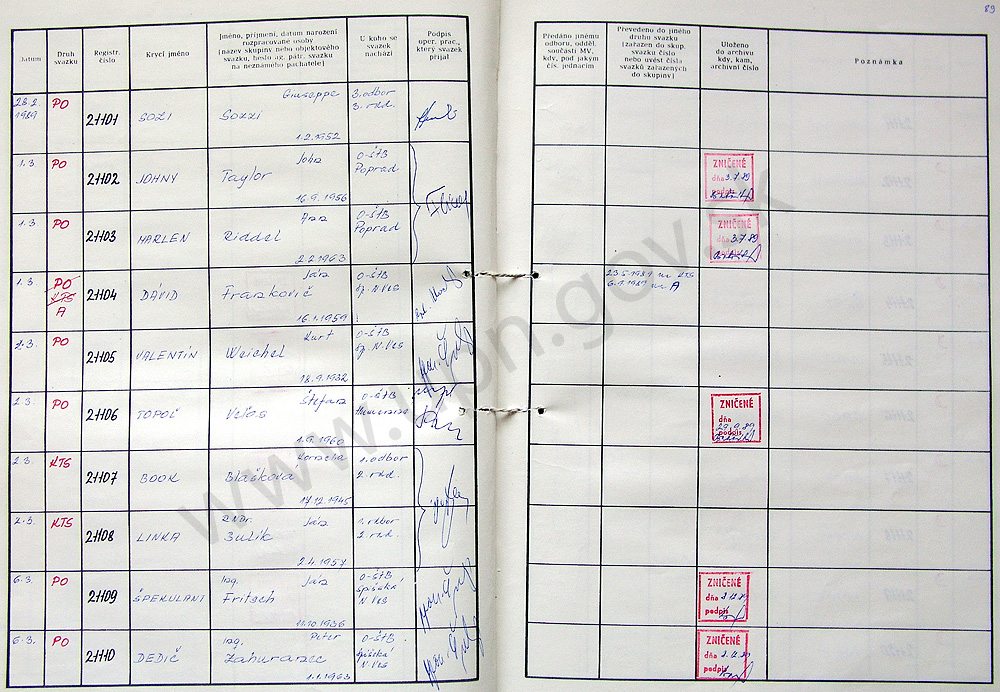 89
Datum
Druh svazku
Registr. číslo
Krycí jméno
Jméno, příjmení, datum narození
rozpracované osoby
(název skupiny nebo objektového
svazku, heslo ag. pátr. svazku
na neznámého pachatele)
U koho se
svazek
nachází
Podpis
oper. prac.,
který svazek
přijal
Předáno jinému
odboru, odděl.
součásti MV,
kdy, pod jakým
čís. jednacím
Převedeno do jiného
druhu svazku
(zařazen do skup.
svazku číslo
nebo uvést čísla
svazků zařazených
do skupiny)
Uloženo
do archivu
kdy, kam,
archivní číslo
Poznámka
28.2. 1989 PO 21101 SOZI Giuseppe Sozzi 1.2.1952 3. odbor
1.3 PO 21102 JOHNY John Taylor 16.9.1956 O-ŠTB Poprad
ZNIČENÉ
dňa 3.7.89
podpis
1.3 PO 21103 MARLEN Ann Riddel 2.2.1963 O-ŠTB Poprad
ZNIČENÉ
dňa 3.7.89
1.3 PO KTS A 21104 DÁVID Ján Frankovič 16.1.1959 O-ŠTB Sp. N. Ves
23.5.1989 na KTS
na A
2.3. PO 21105 VALENTÍN Kurt Weichel 18.9.1932 O-ŠTB Sp. N. Ves
2.3. PO 21106 TOPOĽ Štefan 1.9.1960 O-ŠTB
ZNIČENÉ
dňa
29.9.89
podpis
2.3. KTS 21107 BOOK Kornelia Blaškova 17.12.1945 1. odbor
2.3. KTS 21108 LINKA RNDr. Ján Sulík 2.4.1957 1. odbor
6.3. PO 21109 ŠPEKULANT Ing. Ján Fritsch 11.10.1936 O-ŠTB Spišská N. Ves
ZNIČENÉ
dňa 2.12.89
podpis
6.3. PO 21110 DEDIČ Ing. Peter Zahuranec 1.1.1963 O-ŠTB Spišská N. Ves
ZNIČENÉ
dňa 2.12.89
podpis
www.upn.gov.sk